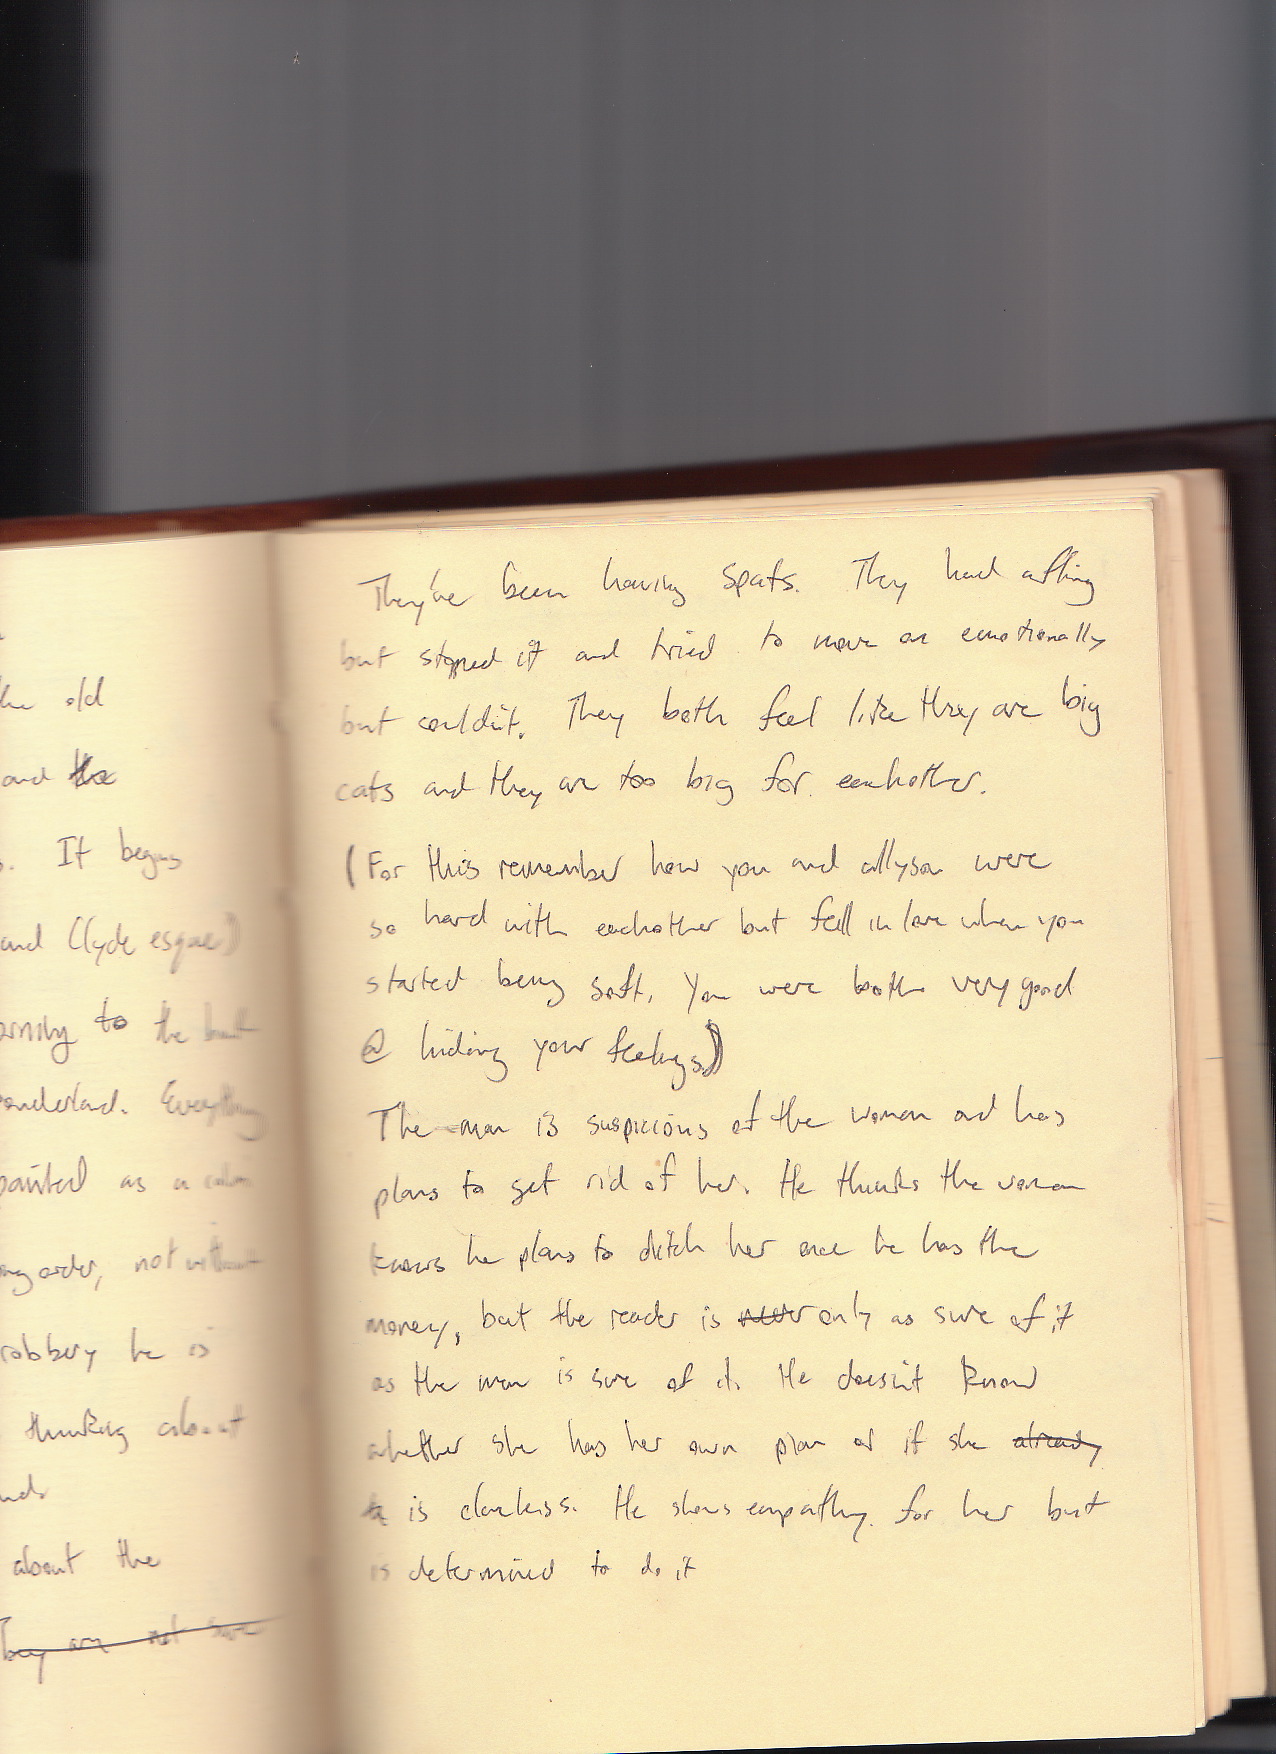 the old
and the
It begins
and Clyde esque)
to the but
wonderland. Everything
painted as a calm
order, not without
robbery he is
thinking about
about the
They are not sure
They've been having spats. They had a fling
but stopped it and tried to move on emotionally
but couldn't. They both feel like they are big
cats and they are too big for eachother.
(For this remember how you and allyson were
so hard with eachother but fell in love when you
started being soft. You were both very good
@ hiding your feelings.)
The man is suspicious of the woman and has
plans to get rid of her. He thinks the woman
knows he plans to ditch her once he has the
money, but the reader is only as sure of it
as the man is sure of it. He doesn't know
whether she has her own plan or if she already
is clueless. He shows empathy for her but
is determined to do it